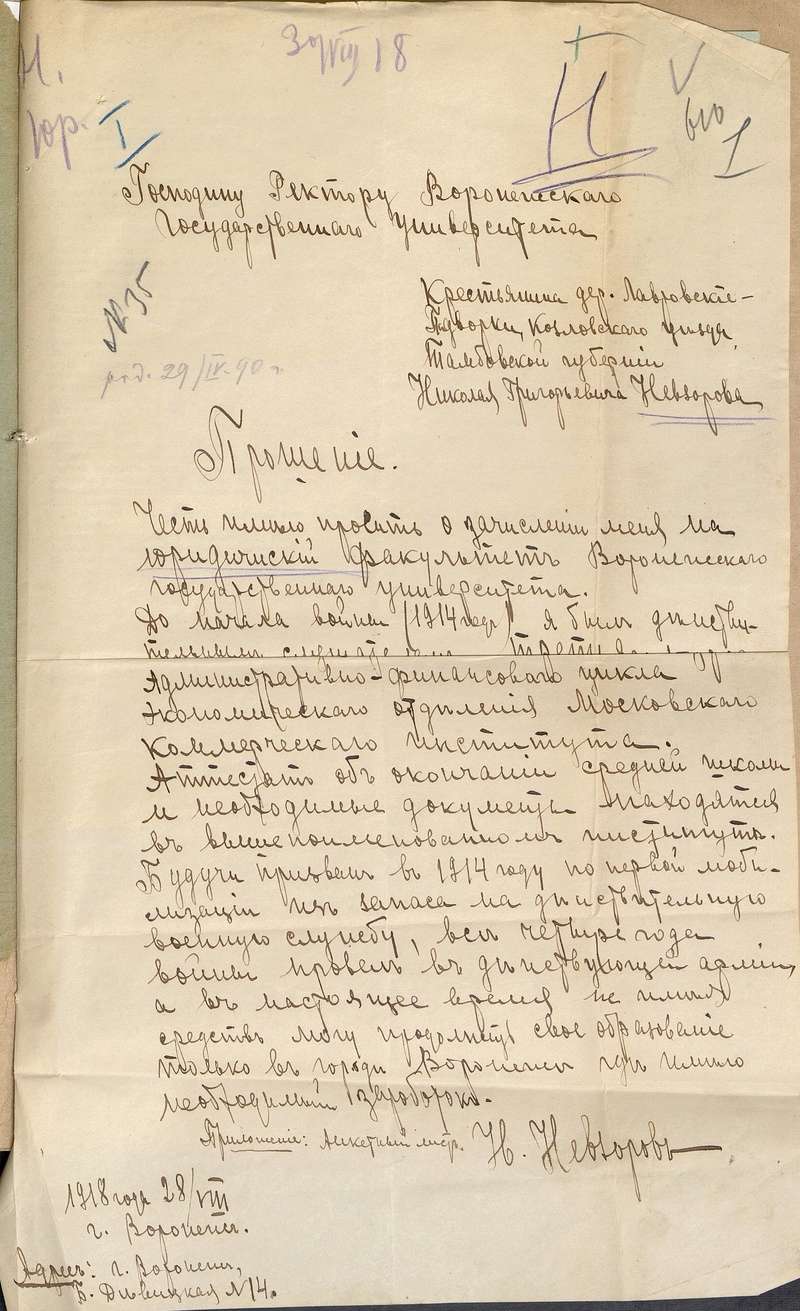 Н.
30/VIII 18
юр. I
Н
V
1
Господину Ректору Воронежскаго
Государственнаго Университета
№ 35
род. 29/IV.90 г.
Крестьянина дер. Лавровскіе-
Дворки, Козловскаго уѣзда,
Тамбовской губерніи
Николая Григорьевича Невзорова
Прошеніе.
Честь имѣю просить о зачисленіи меня на
юридическій факультетъ Воронежскаго
государственнаго университета.
До начала войны (1914 года) я былъ дѣйстви-
тельнымъ
Административно-финансоваго цикла
экономическаго отдѣленія Московскаго
Коммерческаго института.
Аттестатъ объ окончаніи средней школы
и необходимые документы находятся
въ вышепоименованномъ институтѣ.
Будучи призванъ въ 1914 году по первой моби-
лизаціи изъ запаса на дѣйствительную
военную службу, всѣ четыре года
войны провелъ въ дѣйствующей арміи,
а въ настоящее время не имѣя
средствъ могу продолжить свое образованіе
только въ городѣ Воронежѣ гдѣ имѣю
необходимый заработокъ.
Приложеніе: Анкетный листъ. Н. Невзоровъ
1918 года 28/VIII
г. Воронежъ.
Адресъ: г. Воронежъ,
Б. Дѣвицкая № 14.